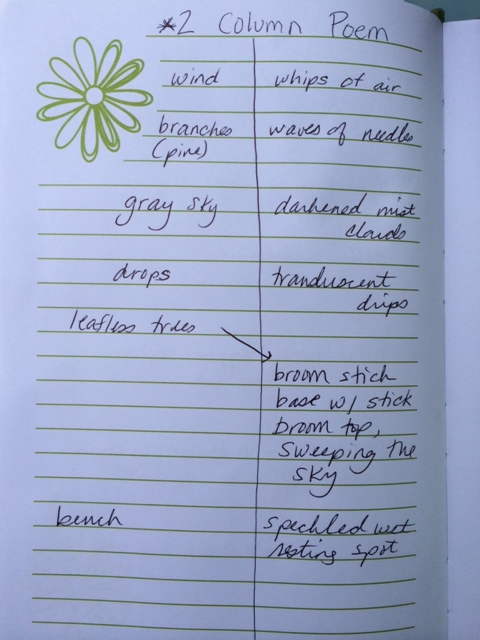 *2 Column Poem
wind whips of air
branches waves of needles
(pine)
gray sky darkened mist
clouds
drops transluscent
drips
leafless trees
broom stick
base w/ stick
broom top,
sweeping the
sky
bench speckled wet
resting spot